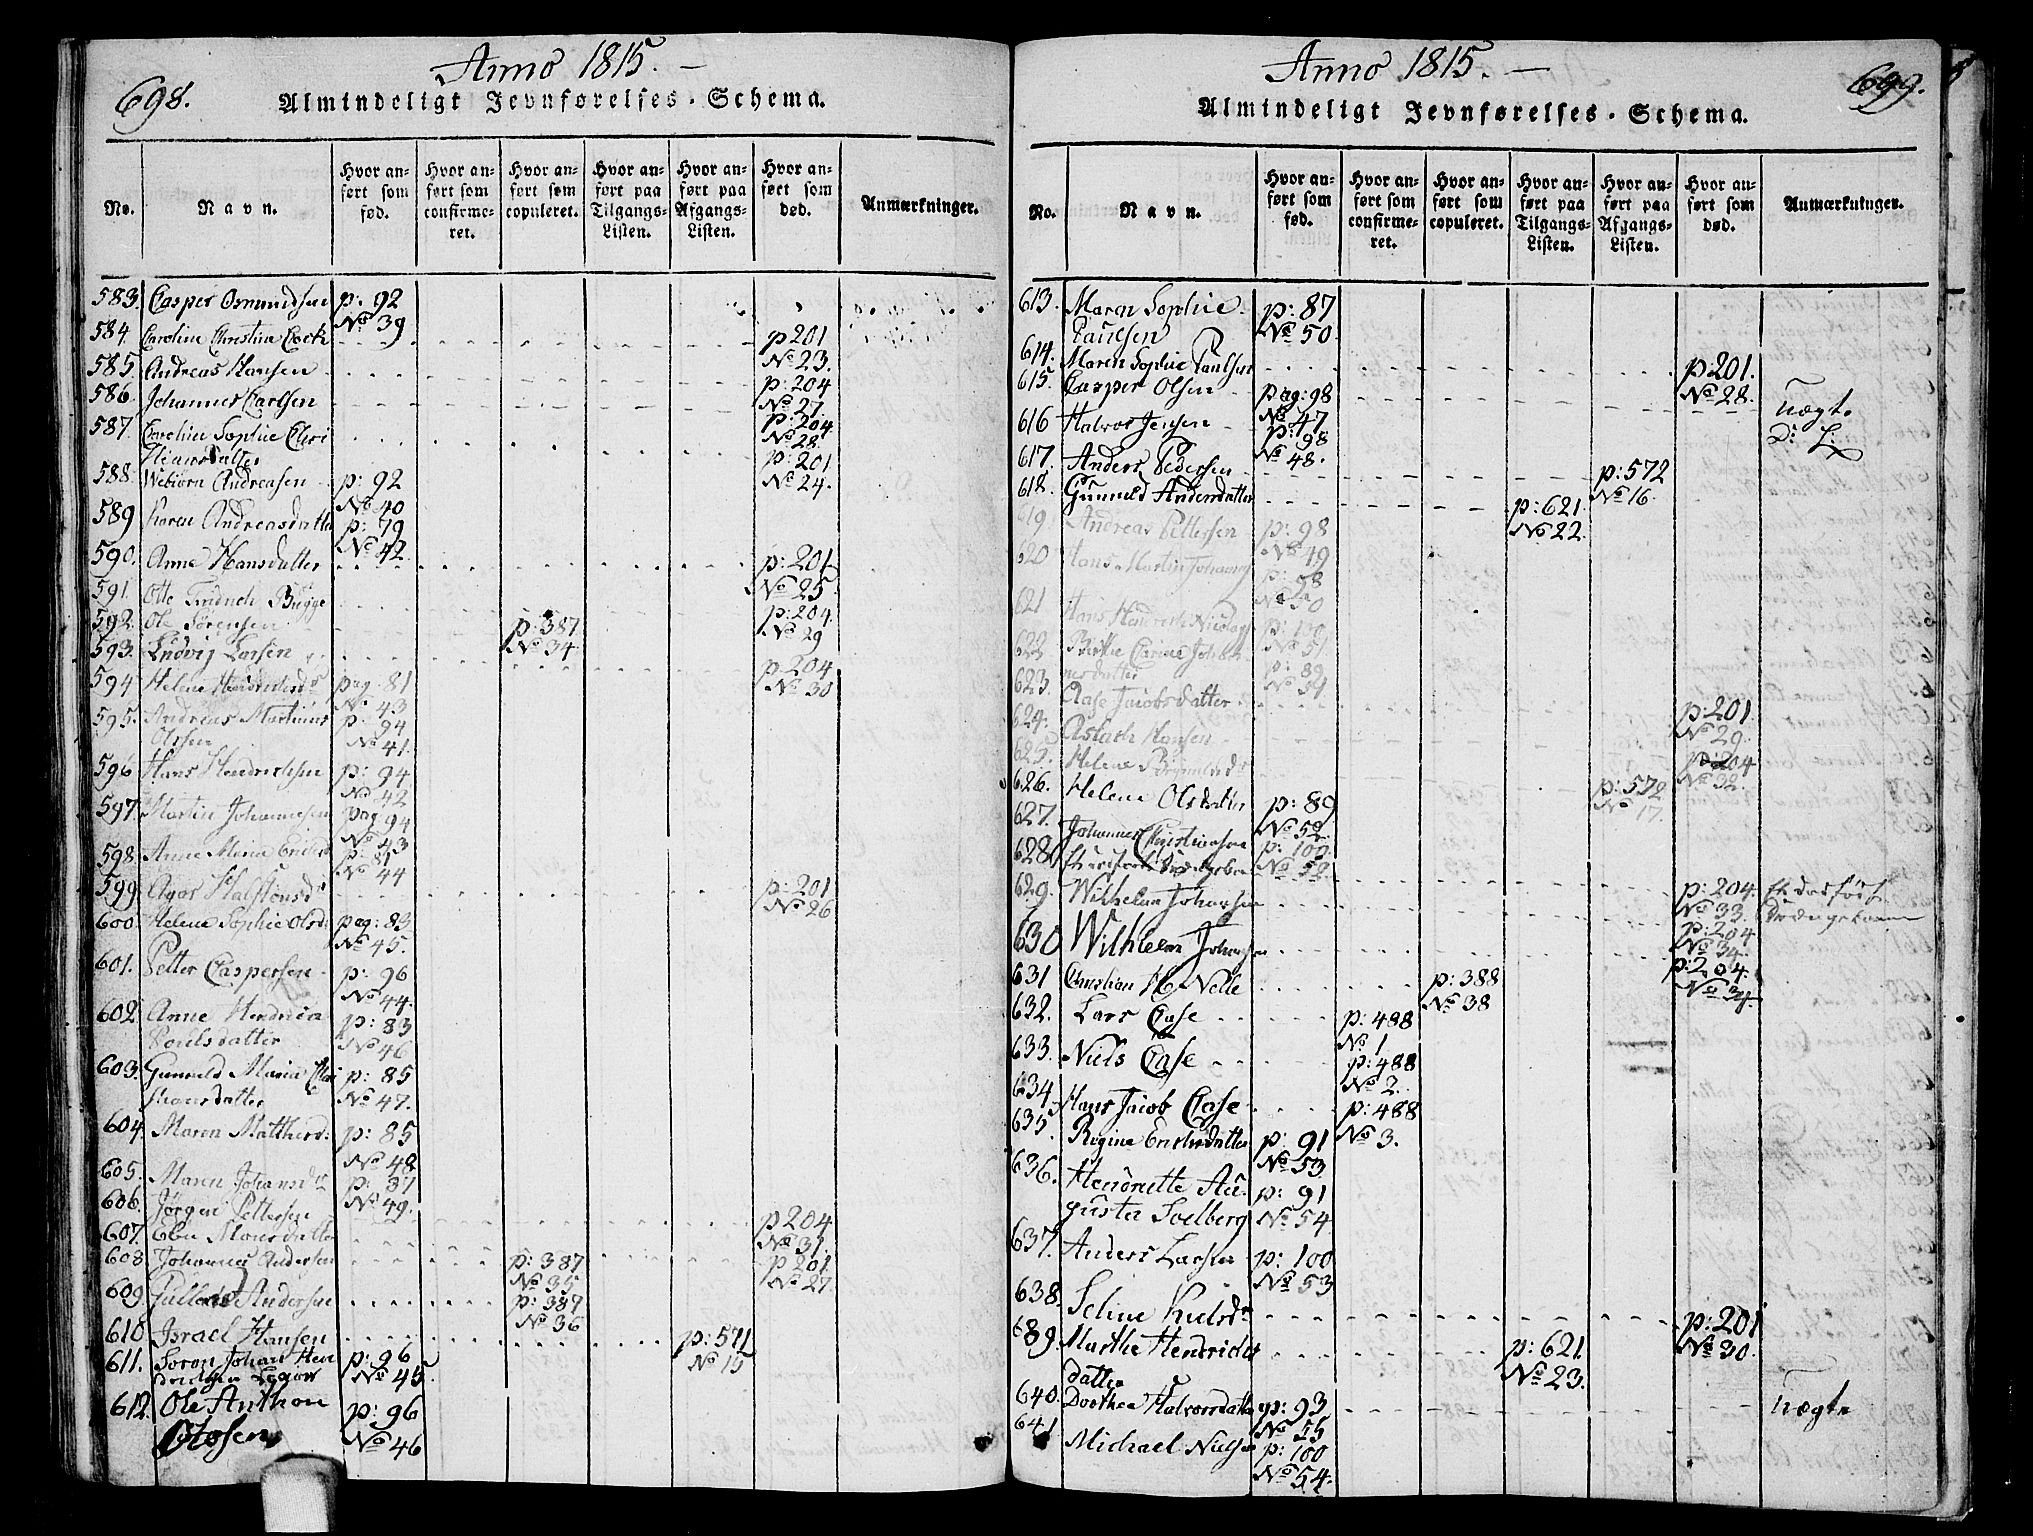 698.
Anno 1815.
Almindeligt Jevnførelses-Schema.
No.
Navn.
Hvor anført som fød.
Hvor anført som confirmeret.
Hvor anført som copuleret.
Hvor anført paa Tilgangs-Listen.
Hvor anført paa Afgangs-Listen.
Hvor anført som død.
Anmærkninger.
583. Casper Osmundsen p: 92 No 39
584. Caroline Christine Cock p 201 No 23.
585. Andreas Hansen p: 204 No 27.
586. Johannes Carlsen p: 204 No 28
587. Caroline Sophie Chri
stiansdatter p: 201 No 24.
588. Webiørn Andreasen p: 92 No 40
589 Karen Andreasdatter p: 79 No 42.
590. Anne Hansdatter p: 201 No 25
591. Otte Fridrich Bugge p: 204 No 29
592. Ole Sørensen p: 387 No 34
593. Ludvig Larsen p 204 No 30
594 Helene pag: 81 No 43
595. Andreas Martinus
Olsen p: 94 No 41.
596 Hans Hendrichsen p: 94 No 42
597 Martin Johannesen pag 94 No 43
598. Anne Maria p: 81 No 44
599 p: 201 No 26
600. Helene Sophie Olsd: pag: 83 No 45.
601. Petter Caspersen p: 96 No 44.
602. Anne
Poulsdatter p: 83 No 46
603. Gunnild Maria Chri
stiansdatter p: 85 No 47.
604 Maren Mathisd: p: 85 No 48
605. Maren Johansdr p: 37 No 49.
606. Jørgen Pettersen p 204 No 31.
607. Monsdatter p 201 No 27
608 Johannes Andersen p: 387 No 35
609 Andersen p: 387 No 36
610 Israel Hansen p: 571 No 15
611. Søren Johan Hen
p: 96 No 45
612. Ole Anthon
Olsen p: 96 No 46
699.
Anno 1815.
Almindeligt Jevnførelses-Schema.
No.
Navn.
Hvor anført som fød.
Hvor anført som confirmeret.
Hvor anført som copuleret.
Hvor anført paa Tilgangs-Listen.
Hvor anført paa Afgangs-Listen.
Hvor anført som død.
Anmærkninger.
613. Maren Sophie
Paulsen p: 87 No 50
614. Maren Sophie Paulsen p 201. No 28.
615. Casper Olsen pag: 98 No 47 uægte
616 Halvor Jensen p: 98 No 48.
617. Anders Pedersen p: 572 No 16
618. Gunnild Andersdatter p: 621 No 22
619 Andreas Pettersen p: 98 No 49
620 Hans Martin p: 98 No 50
621 Hans Hendrich p: 100 No 51
622 Birthe Johan
nesdatter p: 89 No 51
623. Aase Jacobsdatter p: 201 No 29.
624. Aslach Hansen p: 204 No 32.
625. Helene p: 572 No 17.
626. Helene Olsdatter p: 89 No 52
627. Johannes Christiansen p: 100 No 52
628. p: 204 No 33.
Drængebarn
629. Wilhelm Johansen p: 204 No 34
630 Wilhelm Johansen p: 204 No 34
631 Christian M Nelle p: 388 No 38
632. Lars Case p: 488 No 1
633. Niels Case p: 488 No 2.
634. Hans Jacob Case p: 488 No 3.
635. Regine Erichsdatter p: 91 No 53
636. Hendrette Au
gusta Soelberg p: 91 No 54
637. Anders Larsen p: 100 No 53
638. p: 201 No 30.
639. Marthe Hendrichs
datter p: 621 No 23.
640. Dorthea Halvorsdatter p: 93 No 55 uægte
641 Michael Nielsen p: 100 No 54.